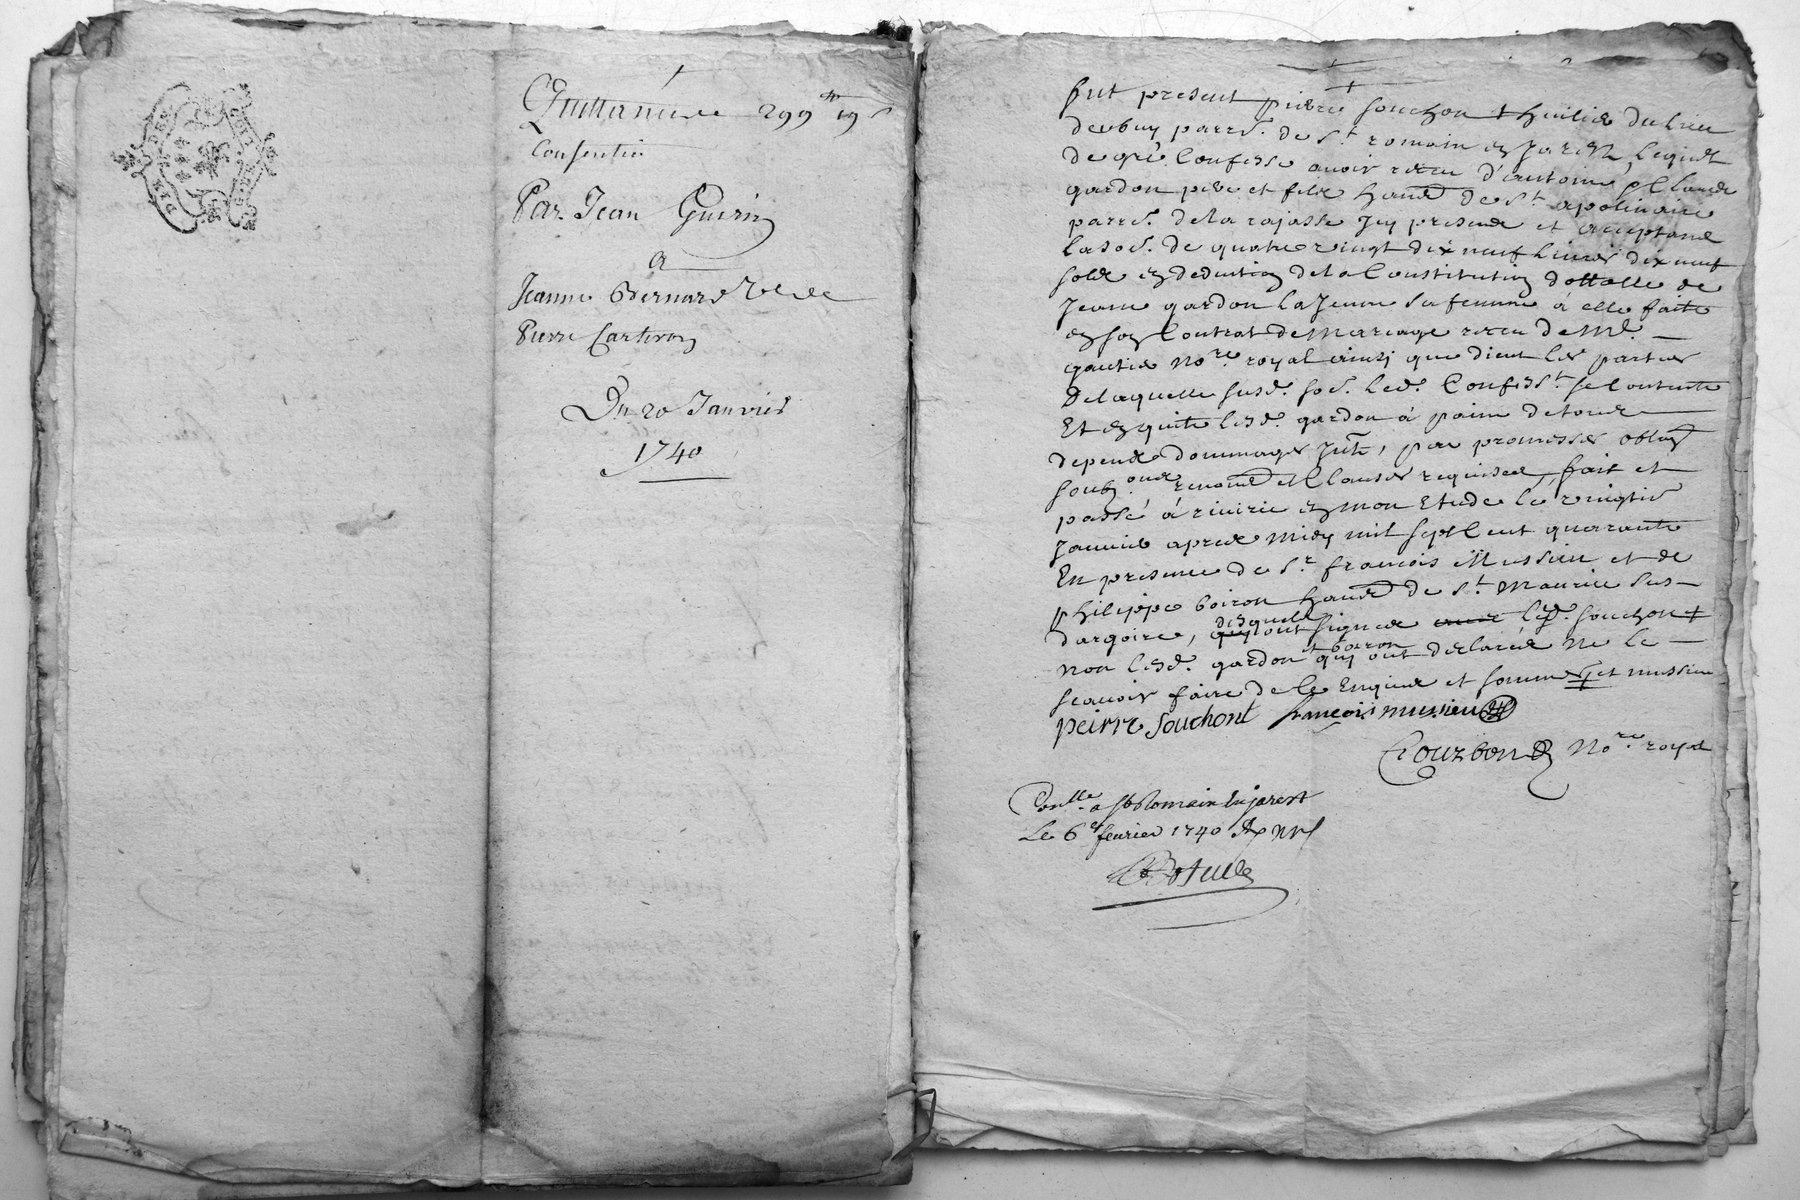 Quittance 299 ₶ 19 s
Consentie
Par Jean Guerin
a
Jeanne Bernard Velle
Pierre Carteron
Du 20 Janvier
1740
fut present pierre souchon + huilier du lieu
debuy parre. de st. romain en Jarest, lequel
de gré Confesse avoir receu d'antoine & Claude
gardon pere et fils habd de st. apolinaire
parre. de la rajasse Jcy presend et acceptand
la soe. de quatre vingt dix neuf livres dix neuf
sols en deduction de la Constitution dottalle de
Jeane gardon la Jeune sa femme à elle faite
en son Contrat de mariage receu de Me.
gautier nore. royal ainsi que dient les parties
De laquelle susd. soe. led. Confesst. se contente
Et en quitte lesd. gardon à peine de tous
depends dommages Jnts, par promesses oblig
soubz ond renond et Clauses requises, fait et
passé à rivirie en mon Etude le vingtie
Janvier apres midy mil sept Cent quarante
En presence de sr. francois Mussieu et de
philippe boiron habd de st. Maurice sus
dargoire, desquels qui ont signes led. souchon +
non lesd. gardon et boiron qui ont declarés ne le
scavoir faire de ce Enquis et sommes + et mussieu
peirre souchont francois mussieu
Courbon Nore. royal
Conlle. a St Romain En jarest
Le 6e fevrier 1740